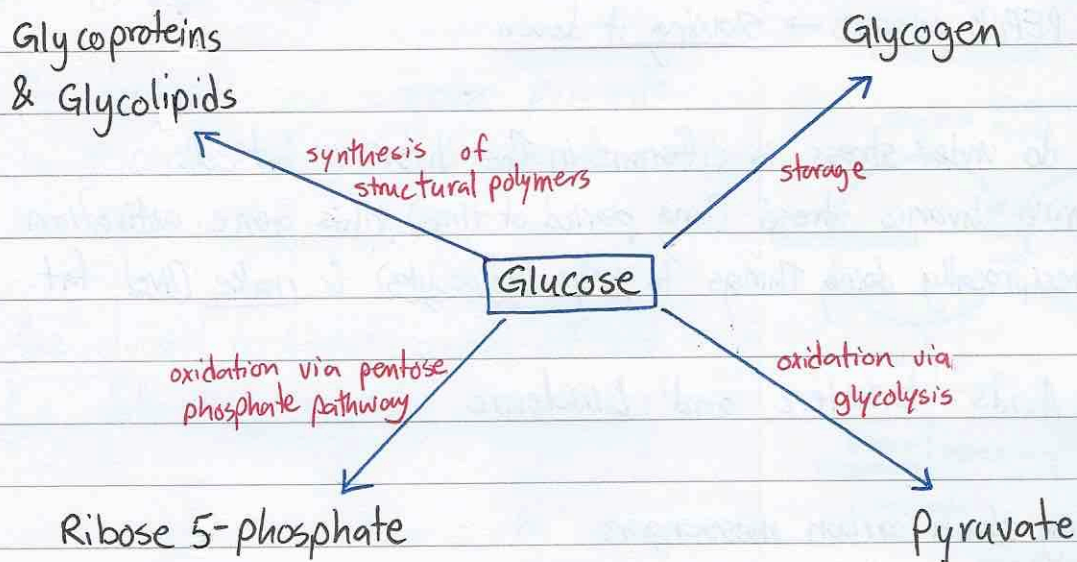 Glycoproteins
& Glycolipids
Glycogen
synthesis of
structural polymers
storage
Glucose
oxidation via pentose
phosphate pathway
oxidation via
glycolysis
Ribose 5-phosphate
Pyruvate